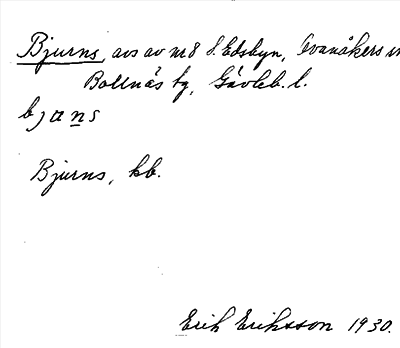 Bjurns, avs av nr 8 S. Edsbyn, Ovanåkers
Bollnäs tg, Gävleb. l.
bjans
Bjurns, kb.
Erik Eriksson 1930.